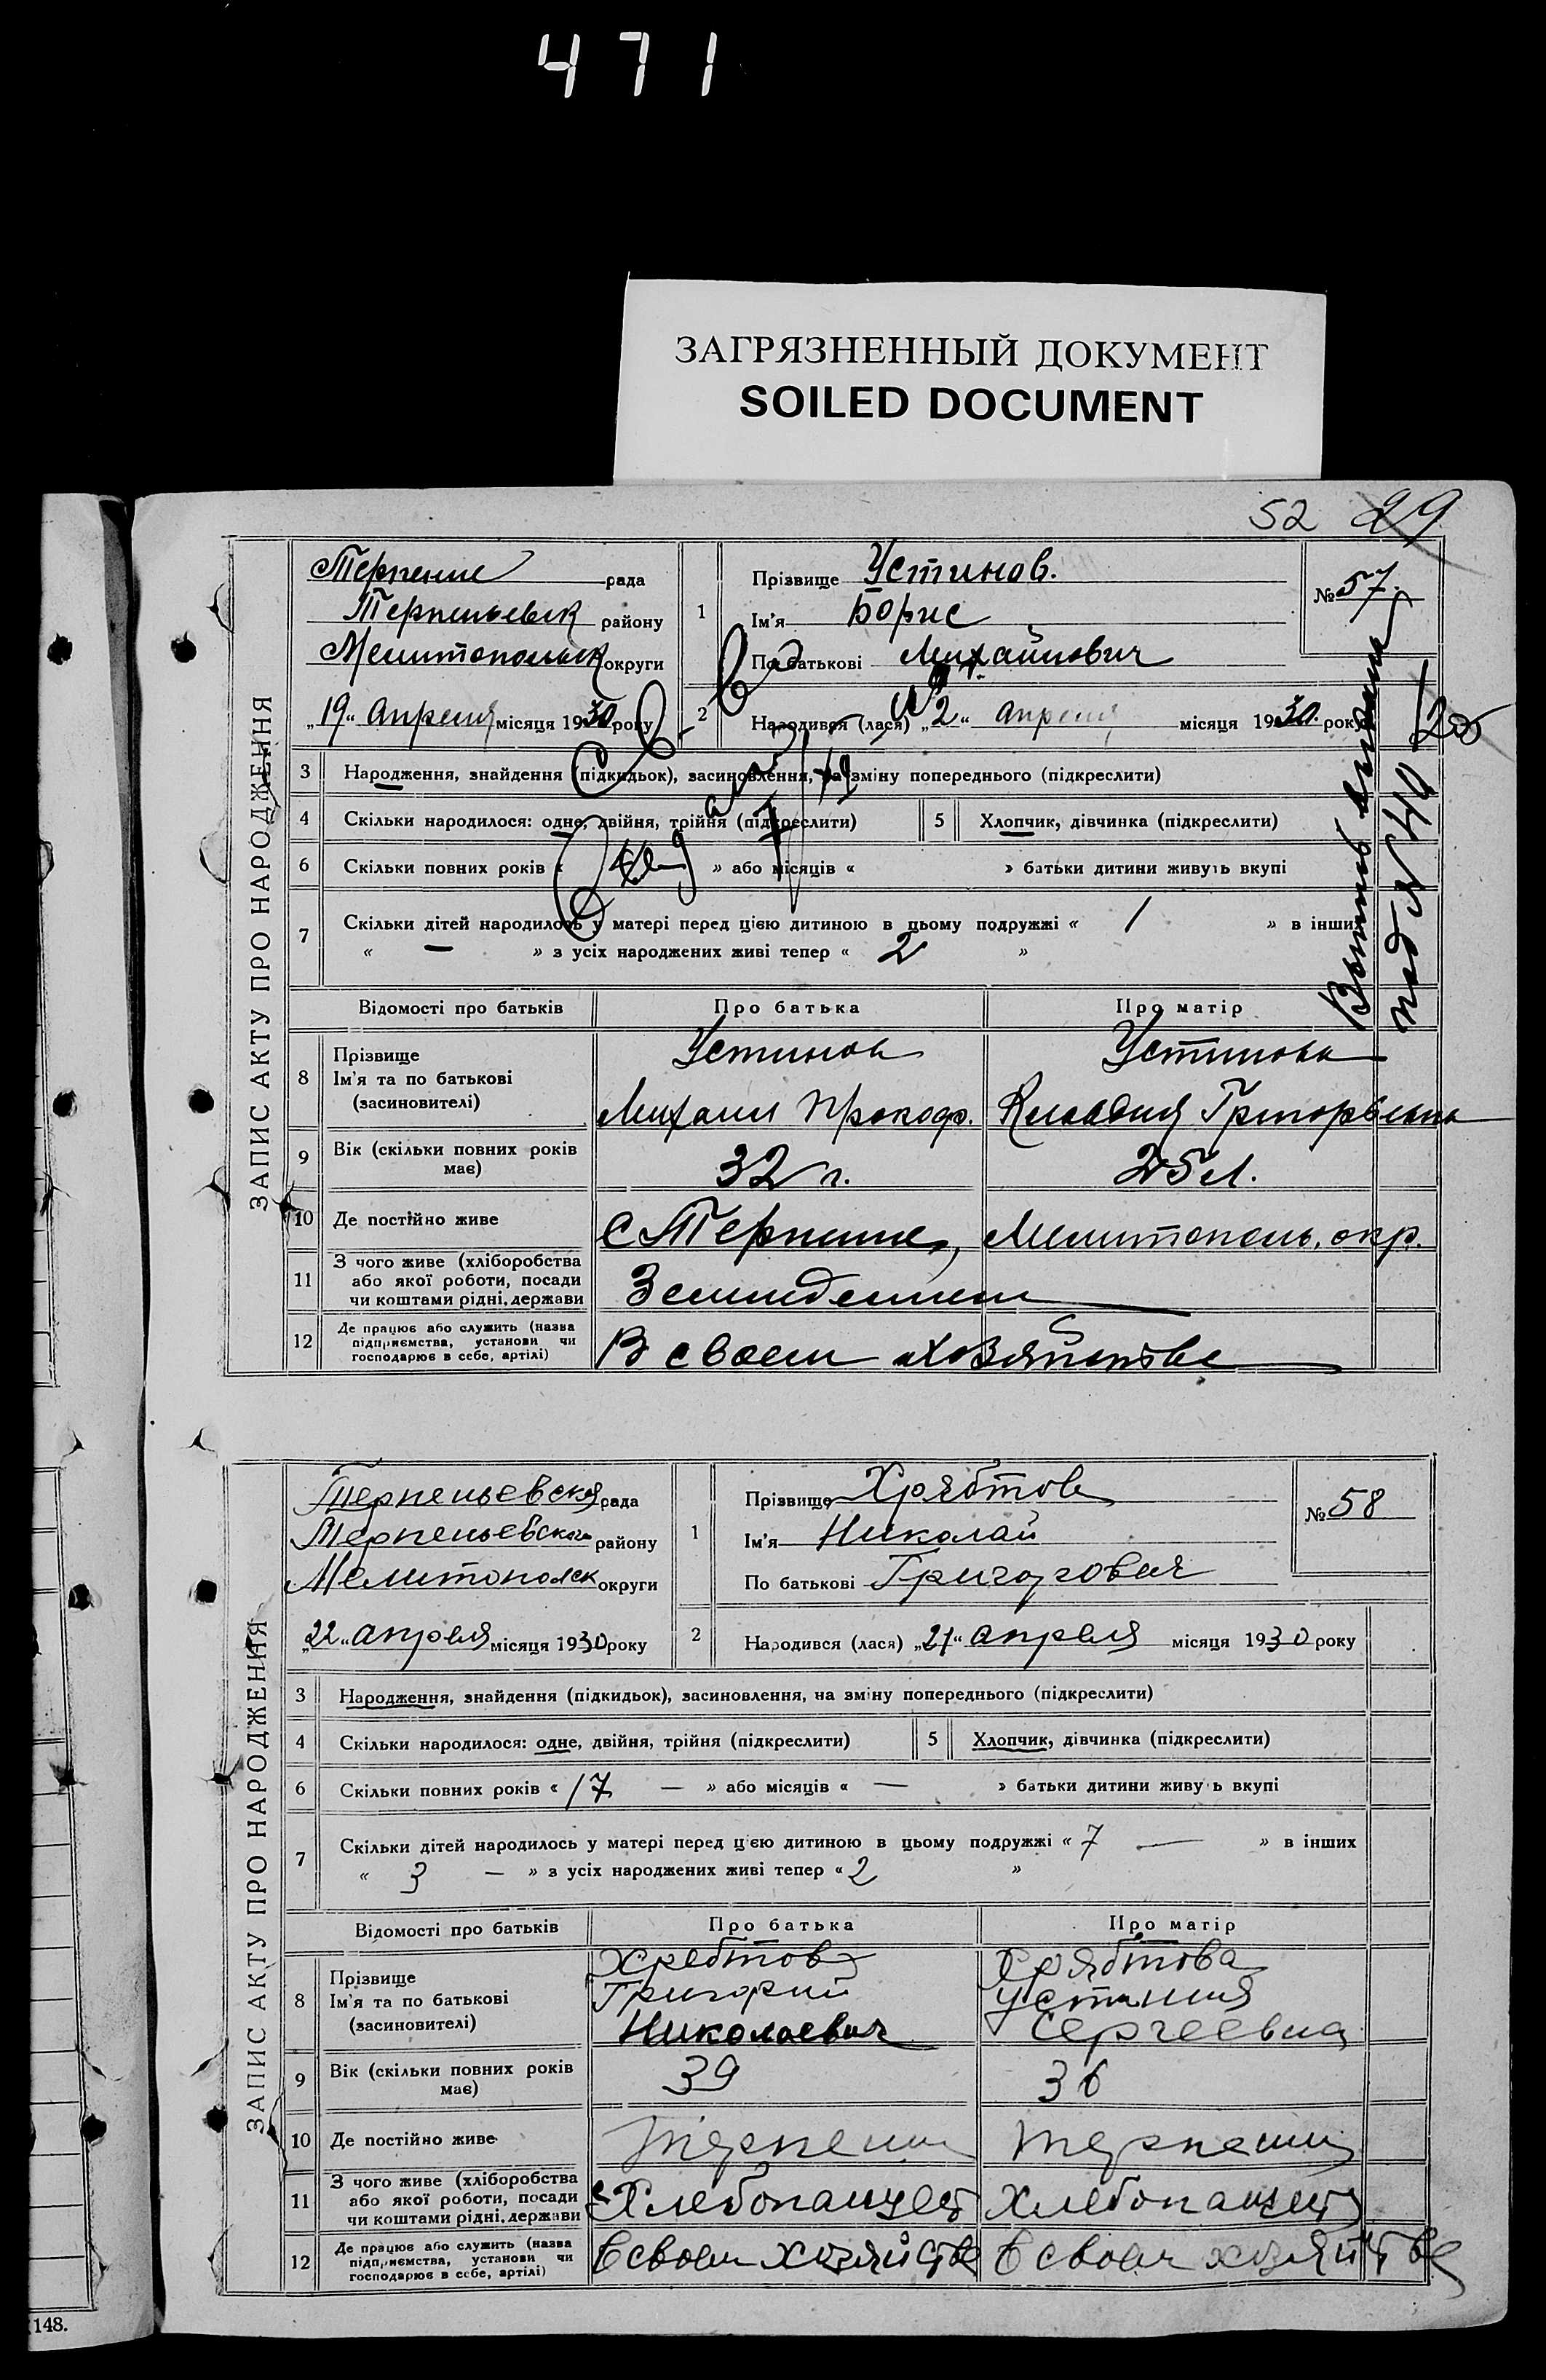 471
ЗАГРЯЗНЕННЫЙ ДОКУМЕНТ
SOILED DOCUMENT
52 29
ЗАПИС АКТУ ПРО НАРОДЖЕННЯ
Терпение рада
Терпеньевск району
Мелитопольск округи
„19“ апреля місяця 1930 року
1
Прізвище Устинов.
Ім'я Борис
По батькові Михайлович
№ 57.
2
Народився (лася) „2“ апреля місяця 1930. року
3 Народження, знайдення (підкидьок), засиновлення, на зміну попереднього (підкреслити)
4 Скільки народилося: одне, двійня, трійня (підкреслити) 5 Хлопчик, дівчинка (підкреслити)
6 Скільки повних років « » або місяців « » батьки дитини живуть вкупі
7 Скільки дітей народилось у матері перед цією дитиною в цьому подружжі « 1 » в інших
« — » з усіх народжених живі тепер « 2 »
Відомості про батьків Про батька Про матір
8 Прізвище Ім'я та по батькові (засиновителі)
Устинов Устинова
Михаил Прокоф. Клавдия Григорьевна
9 Вік (скільки повних років має) 32 г. 25 л.
10 Де постійно живе С Терпение, Мелитополь. окр.
11 З чого живе (хліборобства або якої роботи, посади чи коштами рідні, держави
Земледелием
12 Де працює або служить (назва підприємства, установи чи господарює в себе, артілі)
В своем хозяйстве
ЗАПИС АКТУ ПРО НАРОДЖЕННЯ
Терпеньевская рада
Терпеньевского району
Мелитопольск округи
„22“ апреля місяця 1930 року
1
Прізвище Хрябтов
Ім'я Николай
По батькові Григорович
№ 58
2
Народився (лася) „21“ апреля місяця 1930 року
3 Народження, знайдення (підкидьок), засиновлення, на зміну попереднього (підкреслити)
4 Скільки народилося: одне, двійня, трійня (підкреслити) 5 Хлопчик, дівчинка (підкреслити)
6 Скільки повних років « 17 — » або місяців « — » батьки дитини живуть вкупі
7 Скільки дітей народилось у матері перед цією дитиною в цьому подружжі « 7 — » в інших
« 3 — » з усіх народжених живі тепер « 2 »
Відомості про батьків Про батька Про матір
8 Прізвище Ім'я та по батькові (засиновителі)
Хребтов Хрябтова
Григорий Устиния
Николаевич Сергеевна
9 Вік (скільки повних років має) 39 36
10 Де постійно живе Терпении Терпении
11 З чого живе (хліборобства або якої роботи, посади чи коштами рідні, держави
Хлебопашест Хлебопашест
12 Де працює або служить (назва підприємства, установи чи господарює в себе, артілі)
В своем хозяйстве В своем хозяйстве
148.